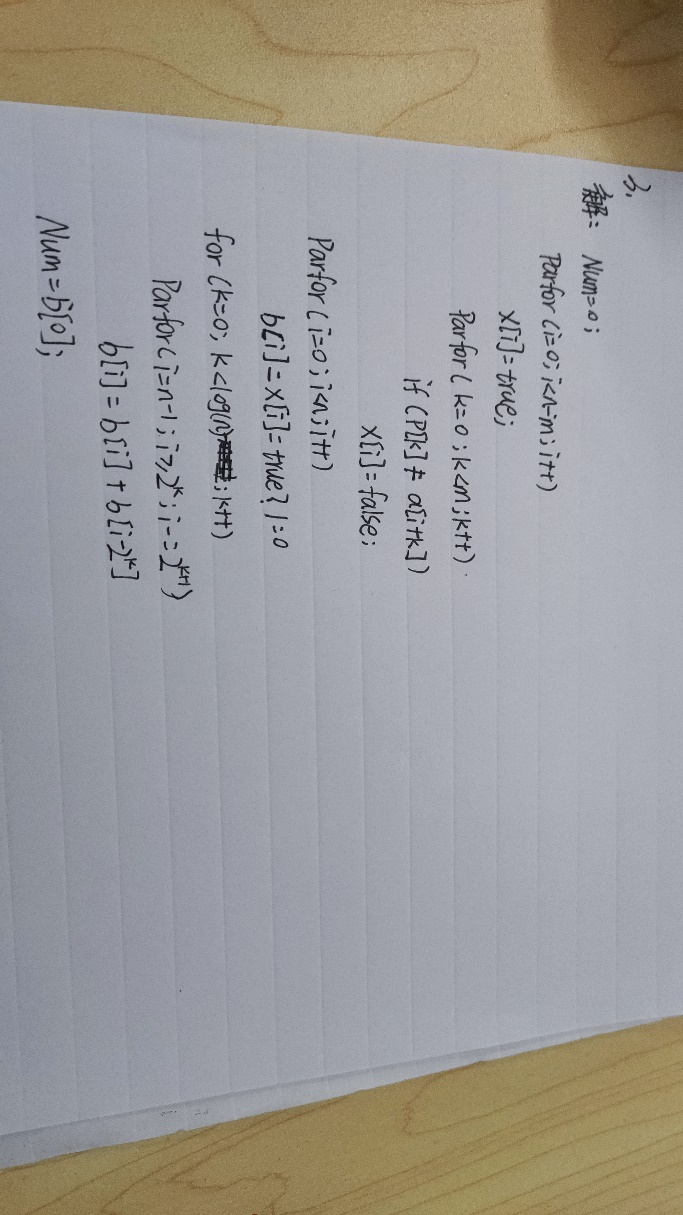 3.
解: Num=0;
Parfor (i=0; i<n-m; i++)
x[i]=true;
Parfor ( k=0; k<m; k++)
if (P[k] ≠ a[i+k])
x[i]=false;
Parfor (i=0; i<n; i++)
b[i]=x[i]=true? 1:0
for (k=0; k<log(n); k++)
Parfor (i=n-1; i≥2^k; i-=2^{k+1})
b[i]=b[i]+b[i-2^k]
Num=b[0];